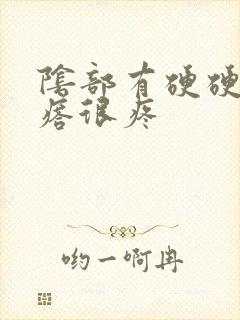 陰部有硬硬
瘩很疼
哟一啊冉